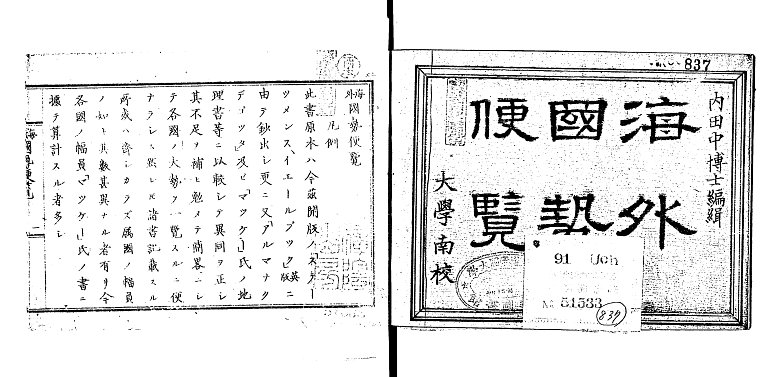 837
内田中博士編緝
海外
國勢
便覧
大學南校
91 Uch
51533
837
海外國勢便覧
凡例
此書原本ハ今茲開版ノ「ステー
ツメンス、イエールブック」英版ニ
由テ鈔出シ更ニ又「アルマナク
デゴツタ」及ヒ「マツケー」氏ノ地
理書等ニ以較シテ異同ヲ正シ
其不足ヲ補ヒ勉メテ簡畧ニシ
テ各國ノ大勢ヲ一覧スルニ便
ナラシム然レ𪜈諸書記載スル
所或ハ齊シカラズ属國ノ幅員
ノ如キ其數甚異ナル者有リ今
各國ノ幅員「マツケー」氏ノ書ニ
據テ算計スル者多シ